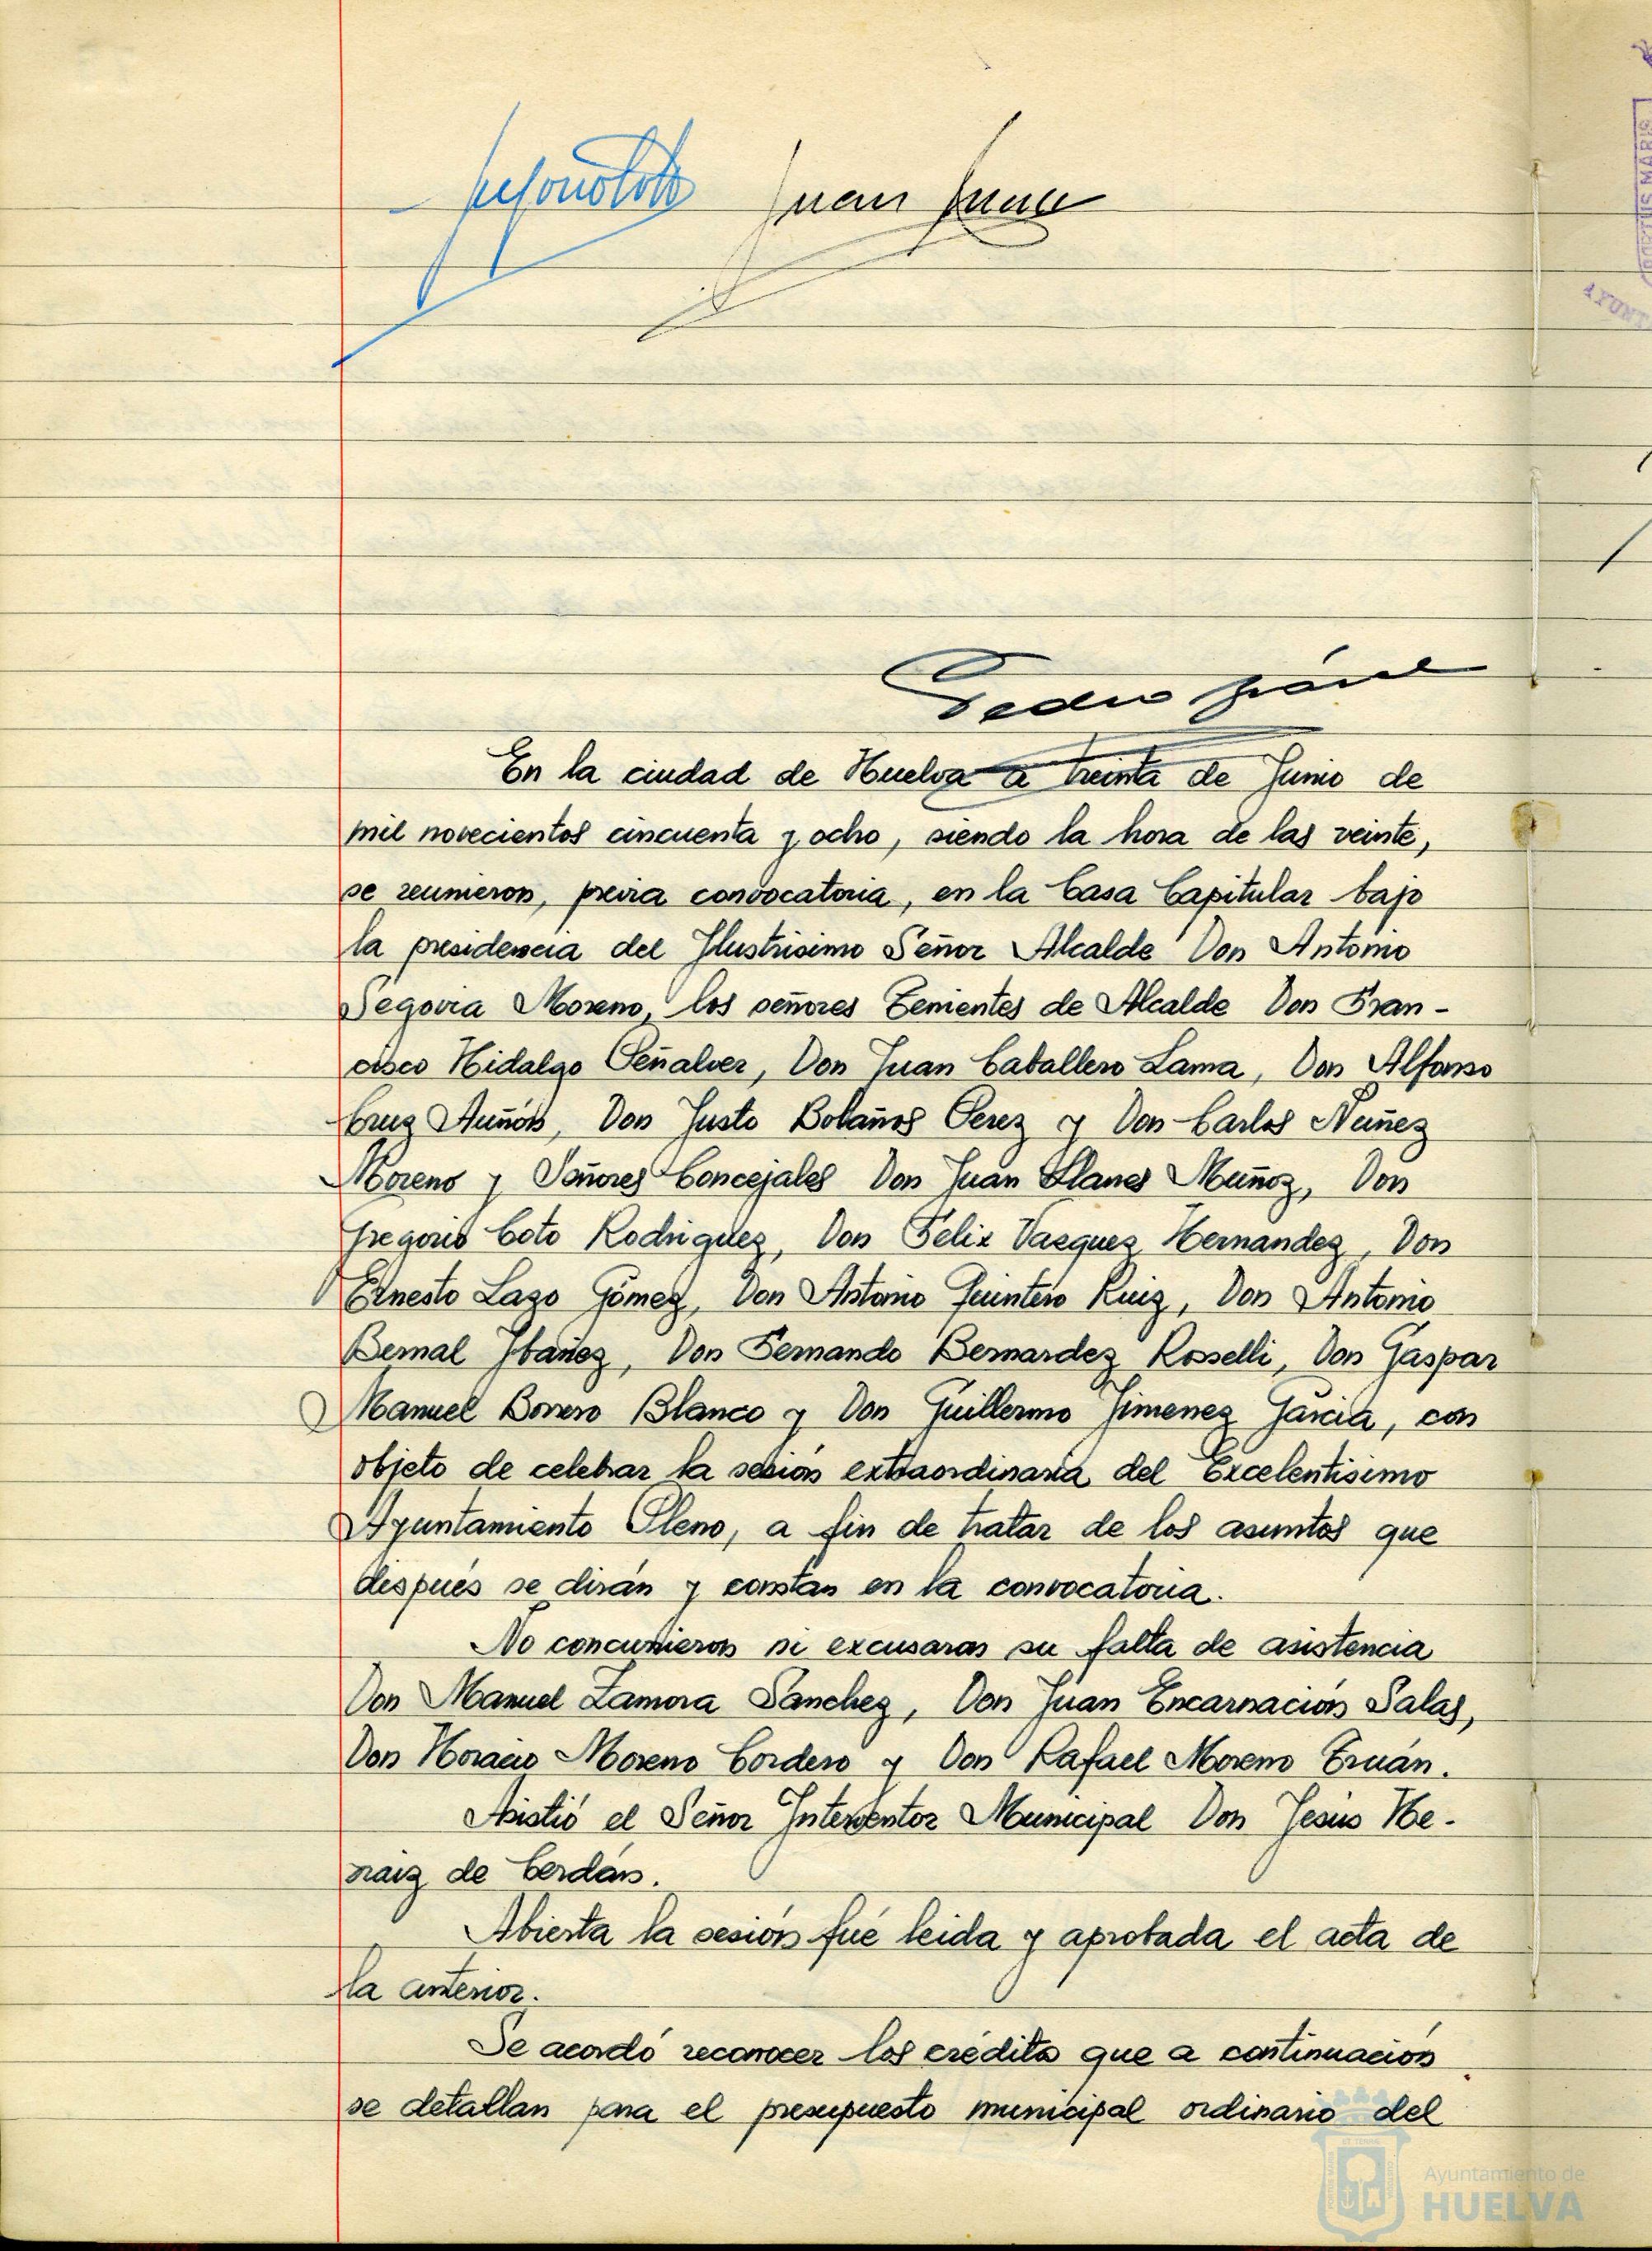 Juan
Pedro
En la ciudad de Huelva a treinta de Junio de
mil novecientos cincuenta y ocho, siendo la hora de las veinte,
se reunieron, previa convocatoria, en la Casa Capitular bajo
la presidencia del Ilustrisimo Señor Alcalde Don Antonio
Segovia Moreno, los señores Tenientes de Alcalde Don Fran-
cisco Hidalgo Peñalver, Don Juan Caballero Lama, Don Alfonso
Cruz Auñón, Don Justo Bolaños Perez y Don Carlos Nuñez
Moreno y Señores Concejales Don Juan Llanes Muñoz, Don
Gregorio Coto Rodriguez, Don Felix Vazquez Hernandez, Don
Ernesto Lazo Gómez, Don Antonio Quintero Ruiz, Don Antonio
Bernal Ibañez, Don Fernando Bernardez Rosselli, Don Gaspar
Manuel Borrero Blanco y Don Guillermo Jimenez García, con
objeto de celebrar la sesión extraordinaria del Excelentisimo
Ayuntamiento Pleno, a fin de tratar de los asuntos que
después se dirán y constan en la convocatoria.
No concurrieron ni excusaron su falta de asistencia
Don Manuel Zamora Sanchez, Don Juan Encarnación Salas,
Don Horacio Moreno Cordero y Don Rafael Moreno Eruán.
Asistió el Señor Interventor Municipal Don Jesús He-
raiz de Cerdán.
Abierta la sesión fué leida y aprobada el acta de
la anterior.
Se acordó reconocer los crédito que a continuación
se detallan para el presupuesto municipal ordinario del
PORTUS MARIS
AYUNT
Ayuntamiento de
HUELVA